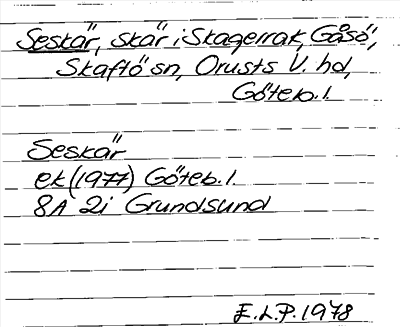 Seskär, skär i Skagerrak, Gåsö,
Skaftö sn, Orusts V. hd,
Göteb. l.
Seskär
ek (1977) Göteb. l.
8A 2i Grundsund
E.L.P. 1978